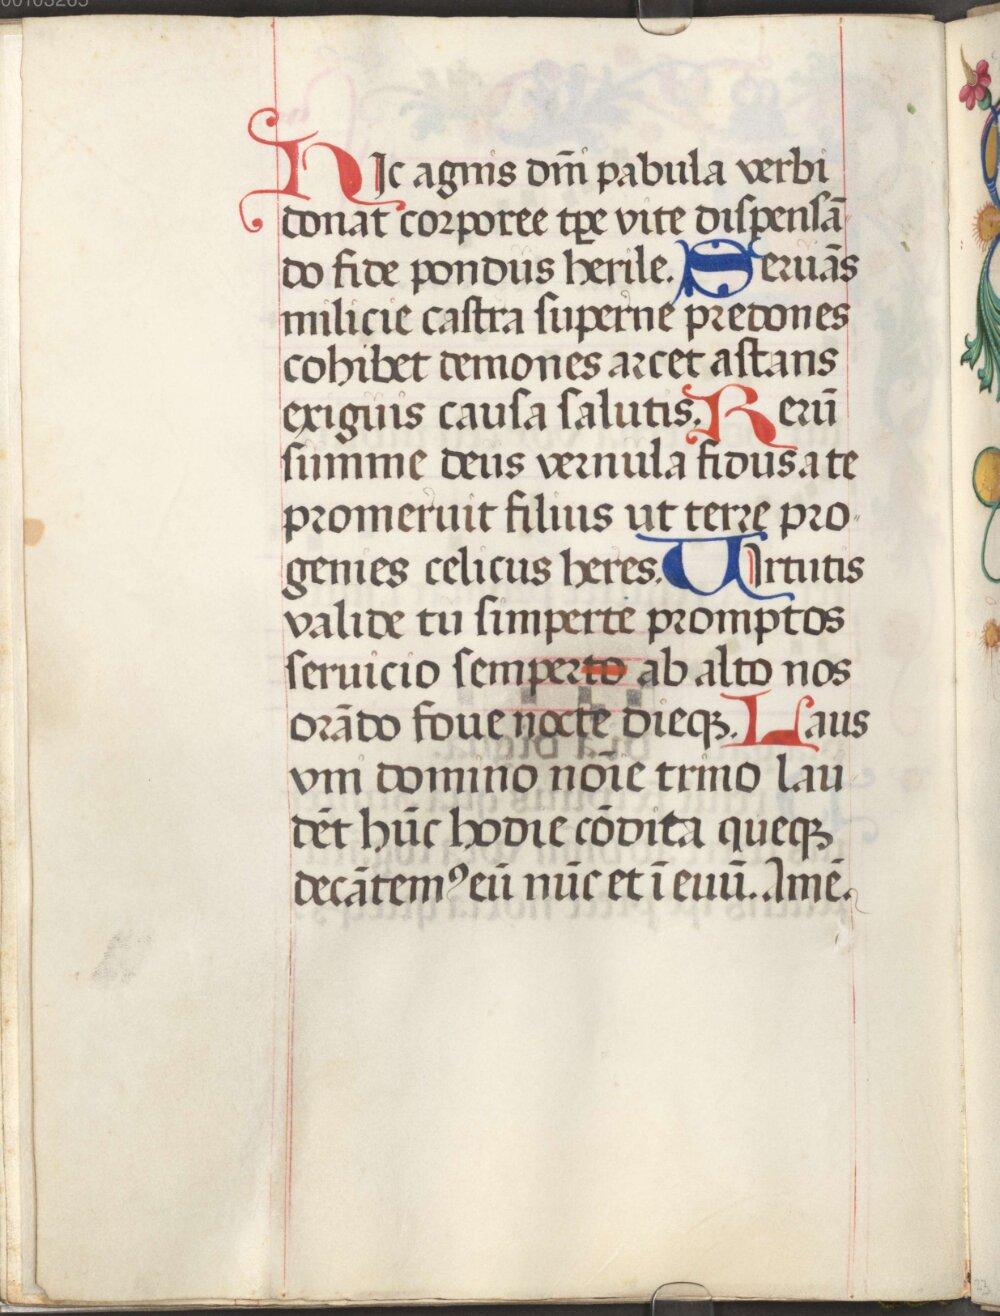 00103263
Hic agnis dn̄i pabula verbi
donat corporee tp̄e vite dispensā
do fide pondus herile. Seruās
milicie castra superne predones
cohibet demones arcet astans
exiguis causa salutis. Rerū
summe deus vernula fidus a te
promeruit filius ut terre pro-
genies celicus heres. Uirtutis
valide tu simperte promptos
seruicio semper to ab alto nos
orādo foue nocte dieqꝫ. Laus
vni domino nōie trino lau
dēt hūc hodie cōdita queqꝫ
decātemꝰ eū nūc et ī euū. Amē.